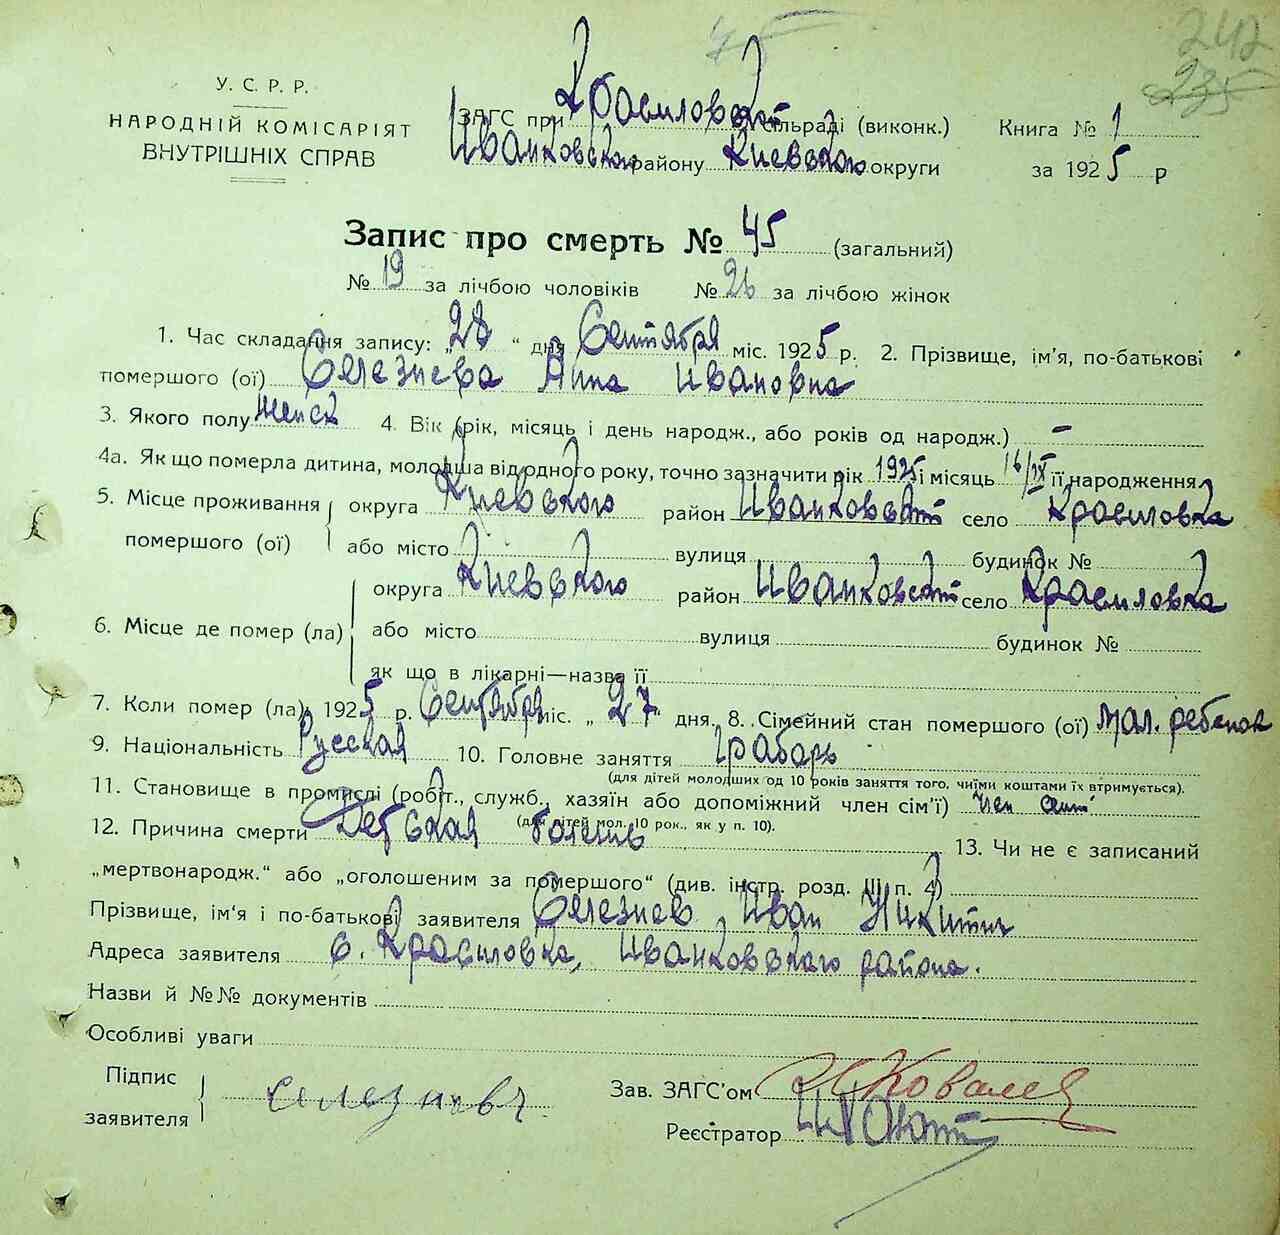 242
235
У. С. Р. Р.
НАРОДНІЙ КОМІСАРІЯТ
ВНУТРІШНІХ СПРАВ
ЗАГС при Красиловской сільраді (виконк.) Книга № 1
Иванковского району Киевского округи за 1925 р
Запис про смерть № 45 (загальний)
№ 19 за лічбою чоловіків № 26 за лічбою жінок
1. Час складання запису: „28“ дня Сентября міс. 1925 р. 2. Прізвище, ім'я, по-батькові
помершого (ої) Селезнева Анна Ивановна
3. Якого полу женск 4. Вік (рік, місяць і день народж., або років од народж.) —
4а. Як що померла дитина, молодша від одного року, точно зазначити рік 1925 і місяць 16/IX її народження
5. Місце проживання округа Киевского район Иванковской село Красиловка
помершого (ої) або місто вулиця будинок №
округа Киевского район Иванковской село Красиловка
6. Місце де помер (ла) або місто вулиця будинок №
як що в лікарні—назва її
7. Коли помер (ла): 1925 р. Сентября міс. „27“ дня. 8. Сімейний стан помершого (ої) мал. ребенок
9. Національність Русская 10. Головне заняття грабарь
(для дітей молодших од 10 років заняття того, чиїми коштами їх втримується).
11. Становище в промислі (робіт., служб., хазяїн або допоміжний член сім'ї) член семи
(для дітей мол. 10 рок., як у п. 10).
12. Причина смерти Детская болезнь 13. Чи не є записаний
„мертвонародж.“ або „оголошеним за помершого“ (див. інстр. розд. III п. 4)
Прізвище, ім'я і по-батькові заявителя Селезнев Иван Никитич
Адреса заявителя с. Красиловка, Иванковского района.
Назви й №№ документів
Особливі уваги
Підпис заявителя Селезневъ
Зав. ЗАГС'ом Коваль
Реєстратор